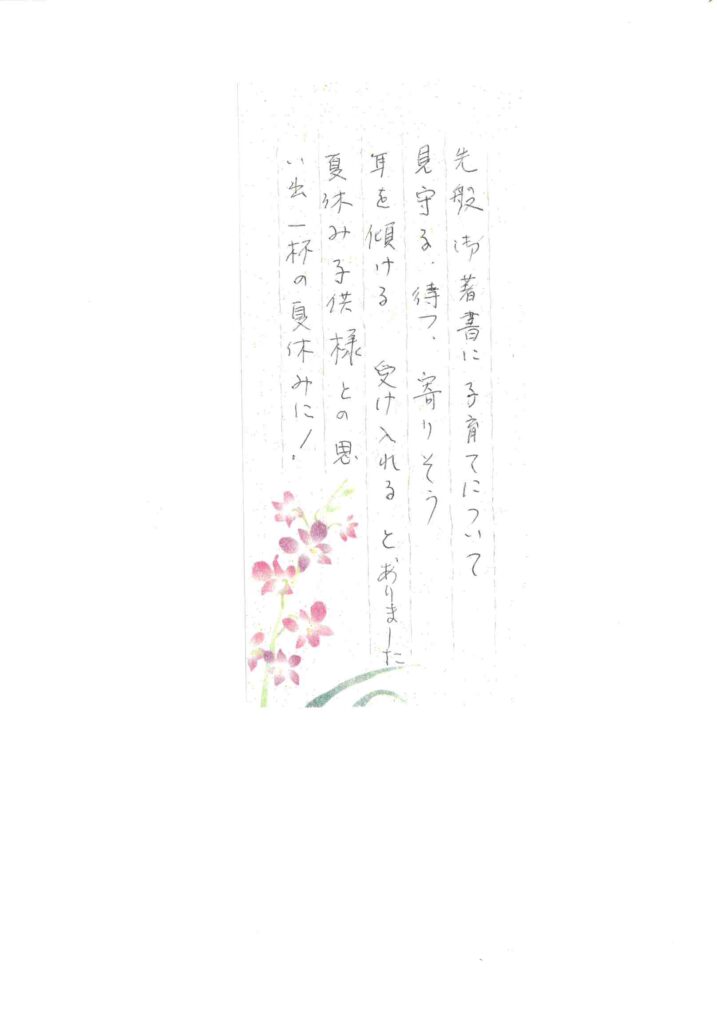 先般御著書に子育てについて
見守る、待つ、寄りそう
耳を傾ける 受け入れる とありました
夏休み子供様との思
い出一杯の夏休みに!